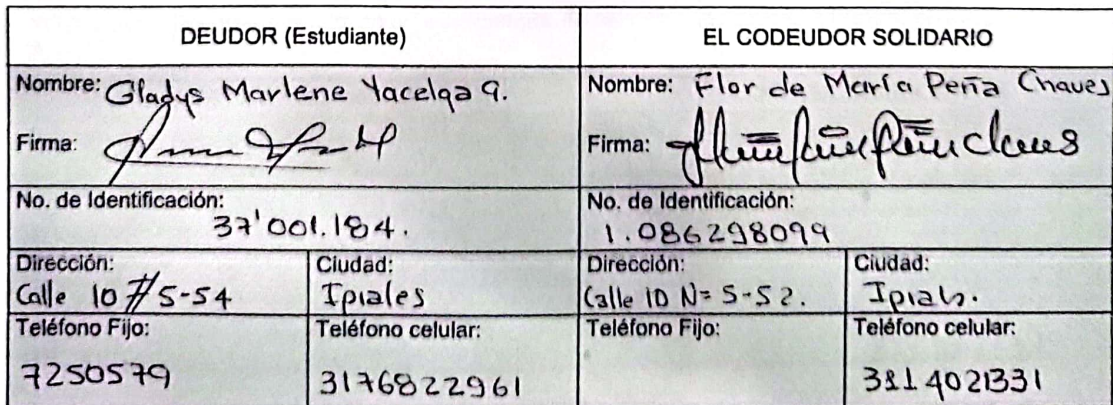 DEUDOR (Estudiante)
EL CODEUDOR SOLIDARIO
Nombre: Gladys Marlene Yacelga G.
Nombre: Flor de María Peña Chaves
Firma:
Firma:
No. de Identificación:
37'001.184.
No. de Identificación:
1.086298099
Dirección:
Calle 10 # 5-54
Ciudad:
Ipiales
Dirección:
Calle 10 N= 5-52.
Ciudad:
Ipiales.
Teléfono Fijo:
7250579
Teléfono celular:
3176822961
Teléfono Fijo:
Teléfono celular:
3214021331